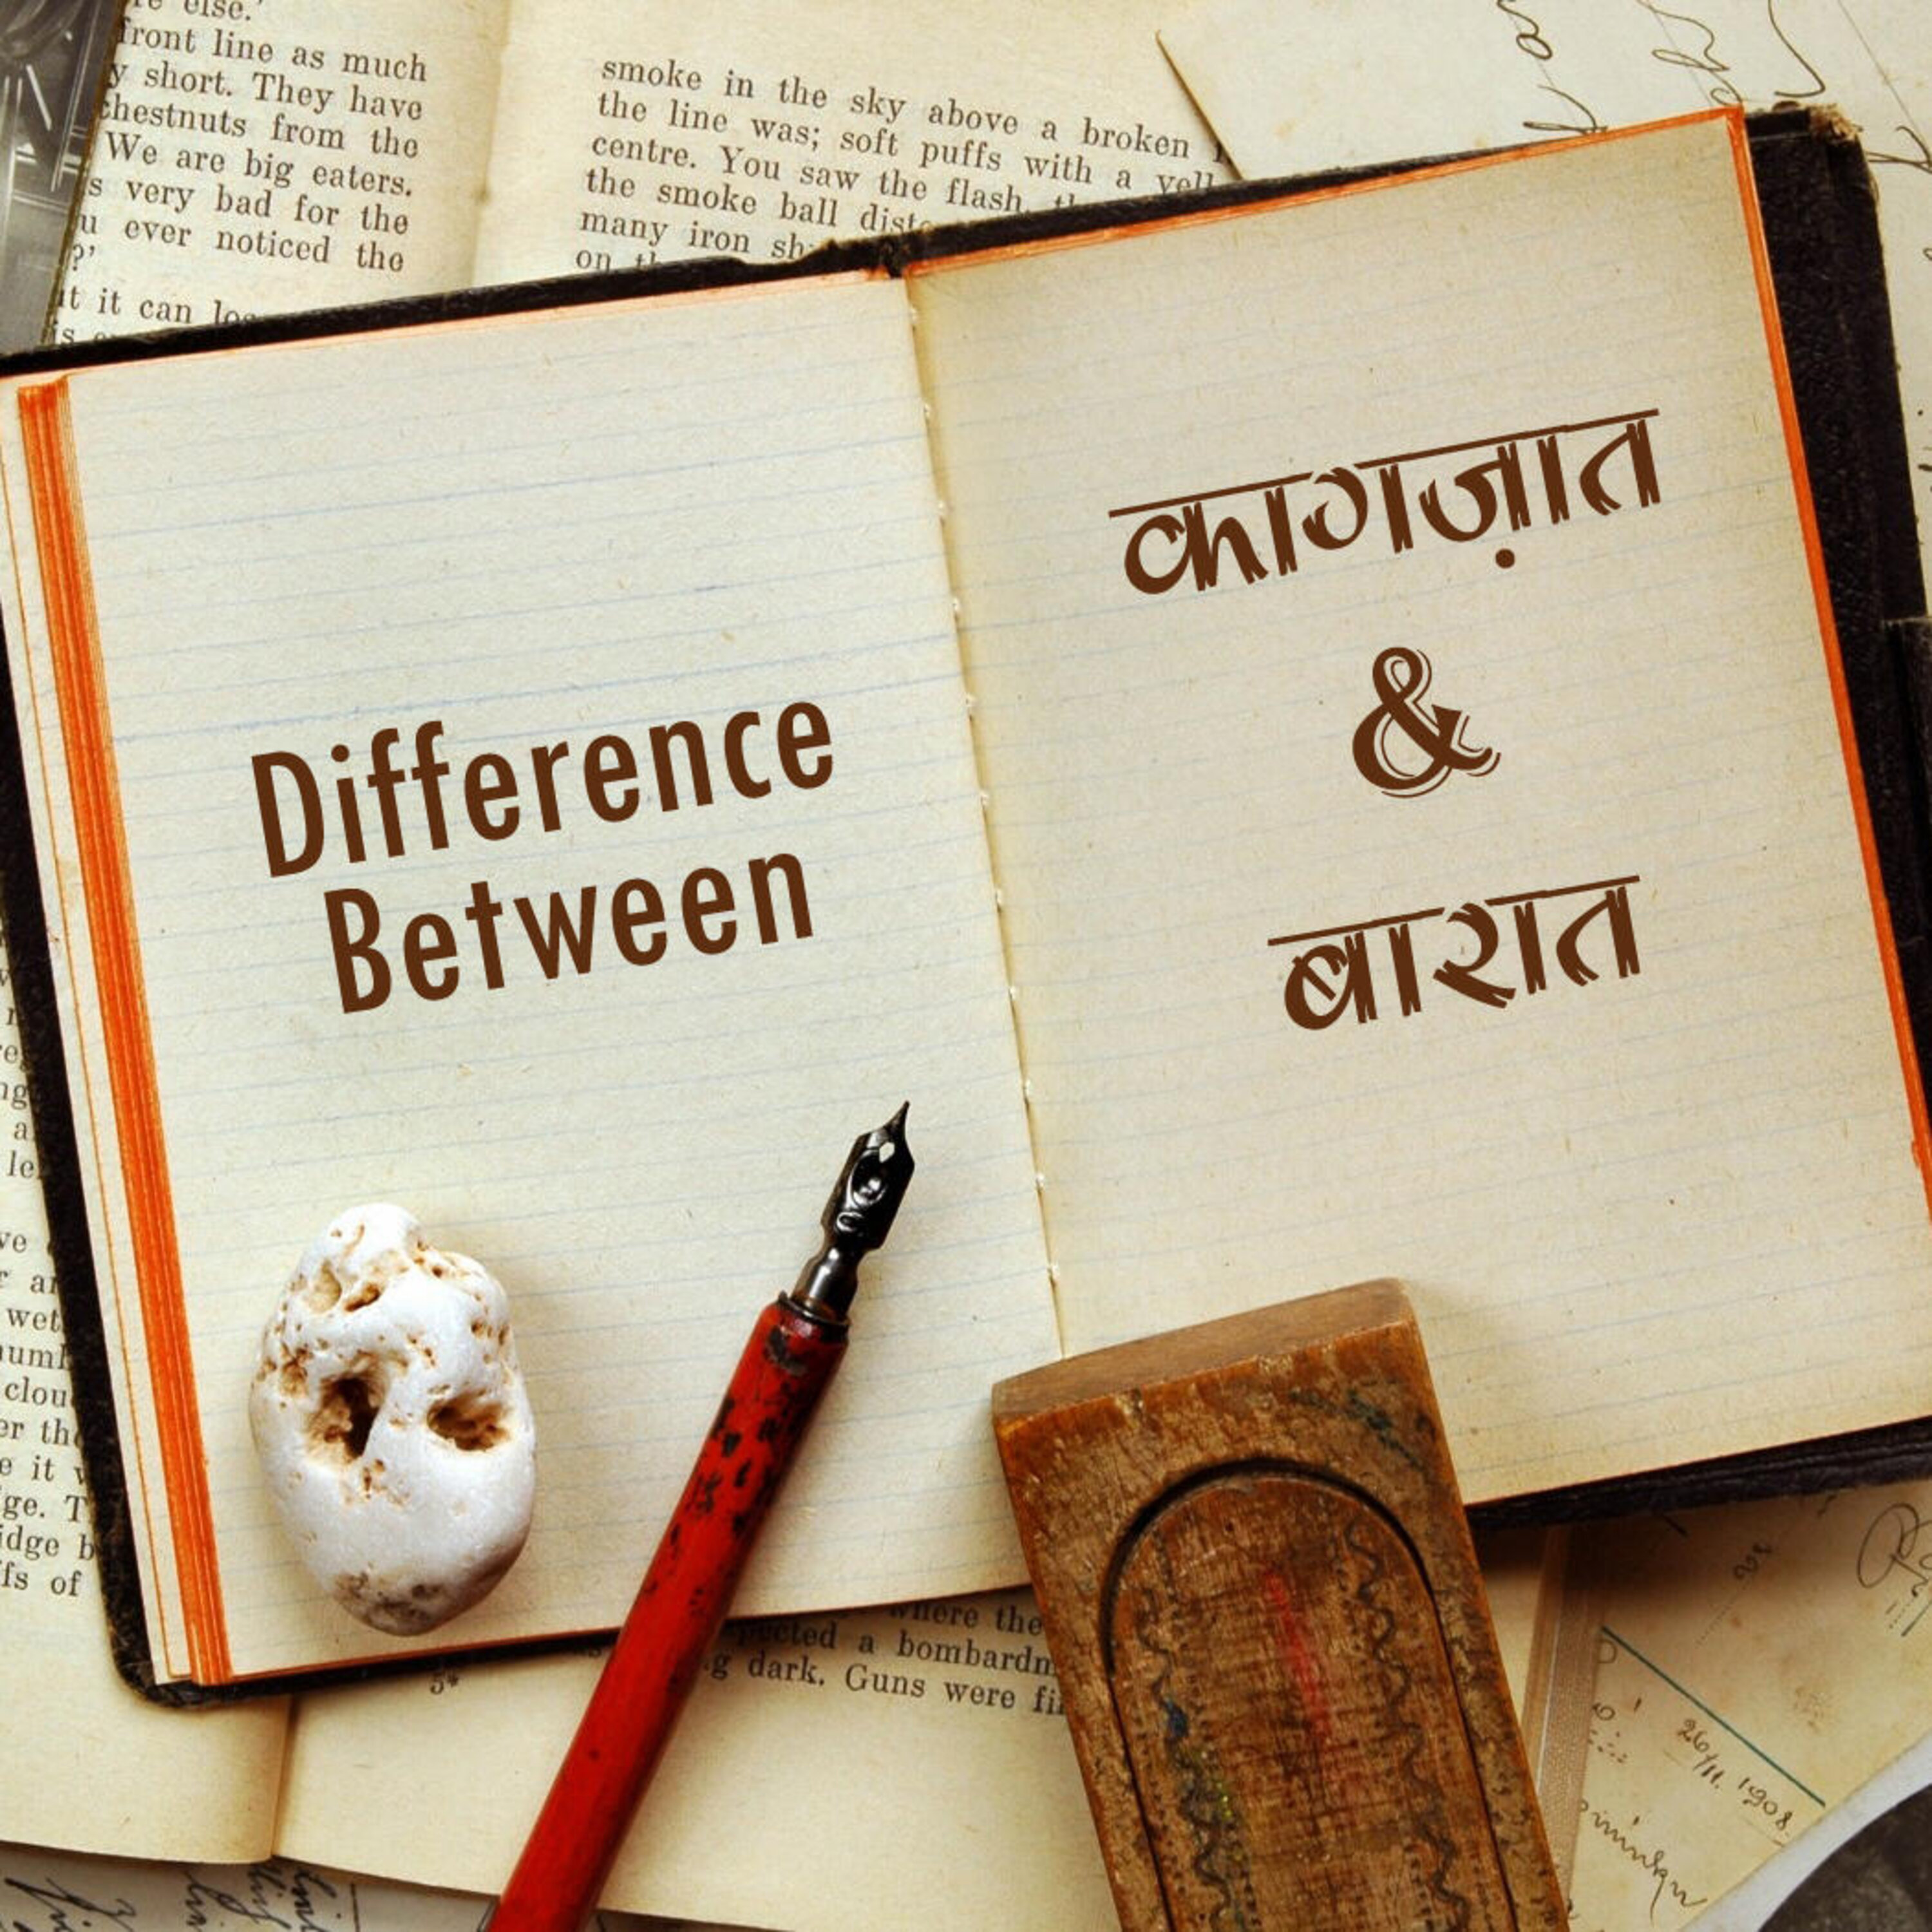 re else.'
front line as much
y short. They have
chestnuts from the
We are big eaters.
s very bad for the
u ever noticed the
?'
it it can
smoke in the sky above a broken
the line was; soft puffs with a
centre. You saw the flash,
the smoke ball
many iron
on
Difference
Between
कागज़ात
&
बारात
where the
a bombardm
g dark. Guns were
5*
le
wet
clou
er the
e it
ge. T
idge b
fs of
26/11. 1908.